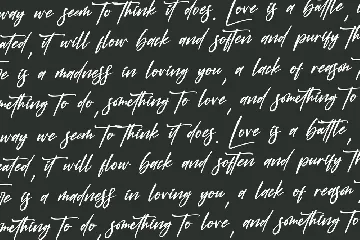 way we seem to think it does. Love is a battle,
ated, it will flow back and soften and purify th
e is a madness in loving you, a lack of reason
mething to do, something to love, and something to
way we seem to think it does. Love is a battle,
ated, it will flow back and soften and purify th
e is a madness in loving you, a lack of reason
mething to do, something to love, and something to